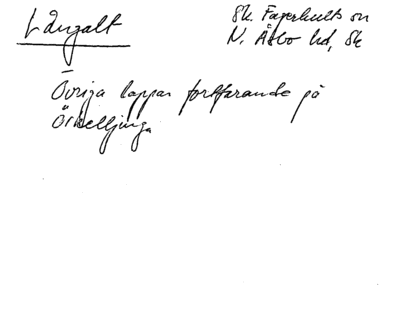 Långalt
Sk. Fagerhults sn
N. Åsbo hd, Sk
Övriga lappar fortfarande på
Örkelljunga